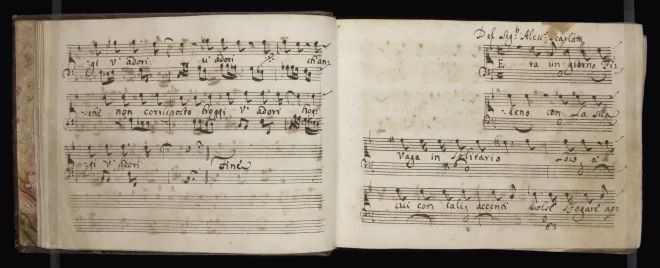 -gi v'adori v'adori ch'an-
-che non corrisposto hoggi v'adori hog-
-gi v'adori Fine
Del Sig.r Aless.o Scarlatti
E ra un giorno Fi-
-leno con la sua
Vaga in solitario loco a'
cui con tali accenti Dolce sfogare ap-